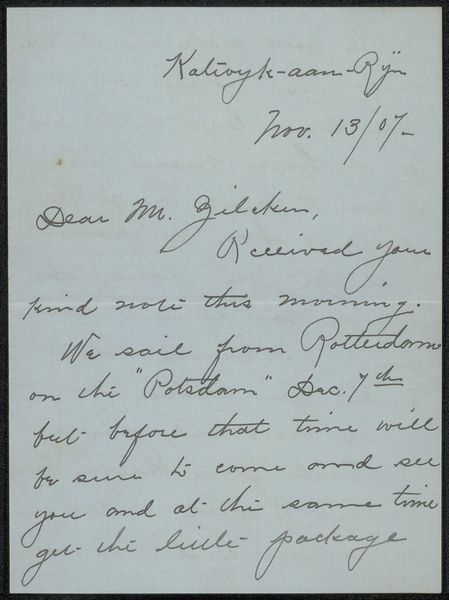 Katwyk-aan-Ryn
Nov. 13/07-
Dear M. Zilcken,
Received your
kind note this morning.
We sail from Rotterdam
on the "Potsdam" Dec. 7th
but before that time will
be sure to come and see
you and at the same time
get the little package